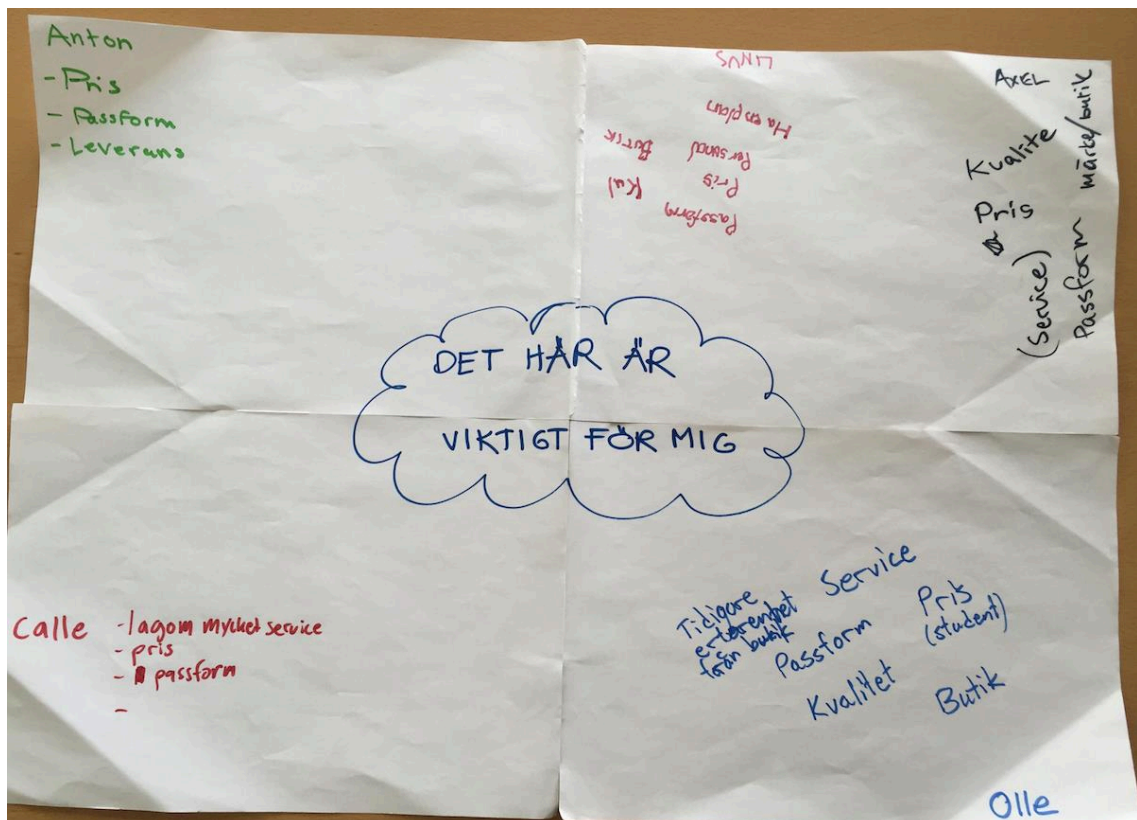 Anton
- Pris
- Passform
- Leverans
LINUS
Ha en plan
Personal Butik
Pris Kul
Passform
AXEL
märke/butik
Kvalite
Pris
Passform
(Service)
DET HÄR ÄR
VIKTIGT FÖR MIG
Calle
- lagom mycket service
- pris
- passform
-
Tidigare
erfarenhet
från butik
Service
Passform
Pris
(student)
Kvalitet
Butik
Olle